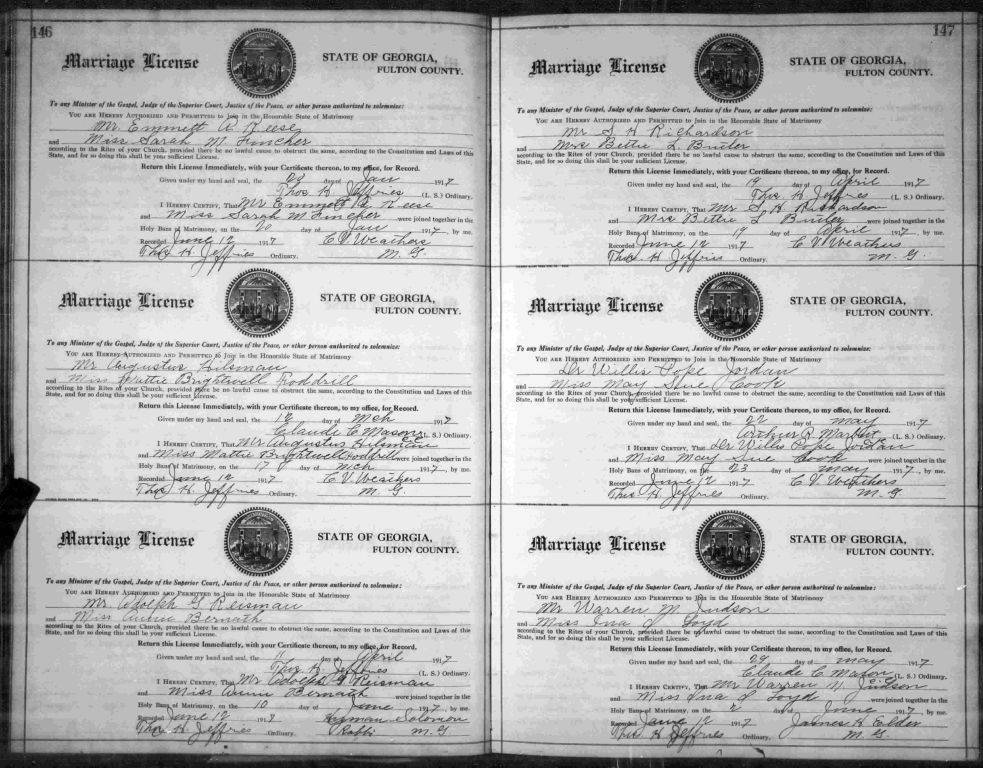 146
Marriage License
STATE OF GEORGIA,
FULTON COUNTY.
To any Minister of the Gospel, Judge of the Superior Court, Justice of the Peace, or other person authorized to solemnize:
YOU ARE HEREBY AUTHORIZED AND PERMITTED to Join in the Honorable State of Matrimony
Mr Emmett A. Reese
and Miss Sarah M. Fincher
according to the Rites of your Church, provided there be no lawful cause to obstruct the same, according to the Constitution and Laws of this
State, and for so doing this shall be your sufficient License.
Return this License Immediately, with your Certificate thereon, to my office, for Record.
Given under my hand and seal, the day of Jan 1917
Thos H. Jeffries (L. S.) Ordinary.
I HEREBY CERTIFY, That Mr Emmett Reese
and Miss Sarah M Fincher were joined together in the
Holy Bans of Matrimony, on the 20 day of Jan 1917, by me.
Recorded June 12 1917 C V Weathers
Thos H. Jeffries Ordinary. M. G.
Marriage License
STATE OF GEORGIA,
FULTON COUNTY.
To any Minister of the Gospel, Judge of the Superior Court, Justice of the Peace, or other person authorized to solemnize:
YOU ARE HEREBY AUTHORIZED AND PERMITTED to Join in the Honorable State of Matrimony
Mr Augustus Hilsman
and Miss Mattie Brightwell Goddrill
according to the Rites of your Church, provided there be no lawful cause to obstruct the same, according to the Constitution and Laws of this
State, and for so doing this shall be your sufficient License.
Return this License Immediately, with your Certificate thereon, to my office, for Record.
Given under my hand and seal, the 12 day of Mch 1917
Claude C Mason (L. S.) Ordinary.
I HEREBY CERTIFY, That Mr Augustus Hilsman
and Miss Mattie Brightwell Goddrill were joined together in the
Holy Bans of Matrimony, on the 17 day of Mch 1917, by me.
Recorded June 12 1917 C. V. Weathers
Thos H. Jeffries Ordinary. M. G
Marriage License
STATE OF GEORGIA,
FULTON COUNTY.
To any Minister of the Gospel, Judge of the Superior Court, Justice of the Peace, or other person authorized to solemnize:
YOU ARE HEREBY AUTHORIZED AND PERMITTED to Join in the Honorable State of Matrimony
Mr Adolph G Reisman
and Miss Bernath
according to the Rites of your Church, provided there be no lawful cause to obstruct the same, according to the Constitution and Laws of this
State, and for so doing this shall be your sufficient License.
Return this License Immediately, with your Certificate thereon, to my office, for Record.
Given under my hand and seal, the day of April 1917
Thos H. Jeffries (L. S.) Ordinary.
I HEREBY CERTIFY, That Mr Adolph G Reisman
and Miss Bernath were joined together in the
Holy Bans of Matrimony, on the 10 day of June 1917, by me.
Recorded June 12 1917 Hyman Solomon
Thos H. Jeffries Ordinary. Rabbi M. G
147
Marriage License
STATE OF GEORGIA,
FULTON COUNTY.
To any Minister of the Gospel, Judge of the Superior Court, Justice of the Peace, or other person authorized to solemnize:
YOU ARE HEREBY AUTHORIZED AND PERMITTED to Join in the Honorable State of Matrimony
Mr S H Richardson
and Mrs Bettie L. Butler
according to the Rites of your Church, provided there be no lawful cause to obstruct the same, according to the Constitution and Laws of this
State, and for so doing this shall be your sufficient License.
Return this License Immediately, with your Certificate thereon, to my office, for Record.
Given under my hand and seal, the 19 day of April 1917
Thos H. Jeffries (L. S.) Ordinary.
I HEREBY CERTIFY, That Mr S. H Richardson
and Mrs Bettie L Butler were joined together in the
Holy Bans of Matrimony, on the 19 day of April 1917, by me.
Recorded June 12 1917 C V Weathers
Thos H. Jeffries Ordinary. M. G.
Marriage License
STATE OF GEORGIA,
FULTON COUNTY.
To any Minister of the Gospel, Judge of the Superior Court, Justice of the Peace, or other person authorized to solemnize:
YOU ARE HEREBY AUTHORIZED AND PERMITTED to Join in the Honorable State of Matrimony
Dr Willis Pope Jordan
and Miss May Sue Cook
according to the Rites of your Church, provided there be no lawful cause to obstruct the same, according to the Constitution and Laws of this
State, and for so doing this shall be your sufficient License.
Return this License Immediately, with your Certificate thereon, to my office, for Record.
Given under my hand and seal, the 22 day of May 1917
Arthur R Marbut (L. S.) Ordinary.
I HEREBY CERTIFY, That Dr Willis Pope Jordan
and Miss May Sue Cook were joined together in the
Holy Bans of Matrimony, on the 23 day of May 1917, by me.
Recorded June 12 1917 C V. Weathers
Thos H. Jeffries Ordinary. M. G
Marriage License
STATE OF GEORGIA,
FULTON COUNTY.
To any Minister of the Gospel, Judge of the Superior Court, Justice of the Peace, or other person authorized to solemnize:
YOU ARE HEREBY AUTHORIZED AND PERMITTED to Join in the Honorable State of Matrimony
Mr Warren M. Judson
and Miss Ina Loyd
according to the Rites of your Church, provided there be no lawful cause to obstruct the same, according to the Constitution and Laws of this
State, and for so doing this shall be your sufficient License.
Return this License Immediately, with your Certificate thereon, to my office, for Record.
Given under my hand and seal, the 29 day of May 1917
Claude C Mason (L. S.) Ordinary.
I HEREBY CERTIFY, That Mr Warren M. Judson
and Miss Ina Loyd were joined together in the
Holy Bans of Matrimony, on the 2 day of June 1917, by me.
Recorded June 12 1917 James H Elder
Thos H. Jeffries Ordinary. M. G.